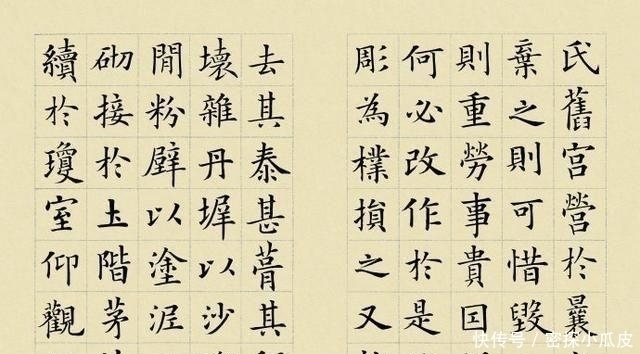 氏舊宮營於曩
棄之則可惜毀
則重勞事貴因
何必改作於是
彫為樸損之又
去其泰甚葺其
壞雜丹墀以沙
閒粉壁以塗泥
砌接於土階茅
續於瓊室仰觀
快传号 / 密探小瓜皮